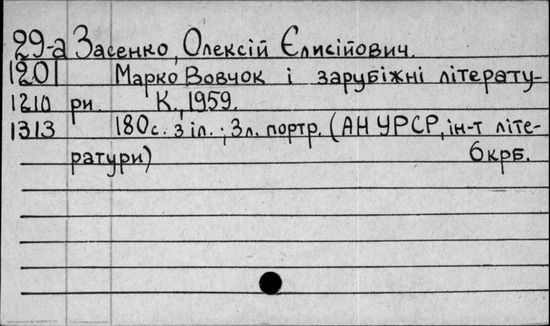 29-а Засенко, Олексій Єлисійович.
1201 Марко Вовчок і зарубіжні літерату-
1210 ри. К., 1959.
1313 180с. з іл.; 3л. портр. (АН УРСР, ін-т літе-
ратури) 6крб.